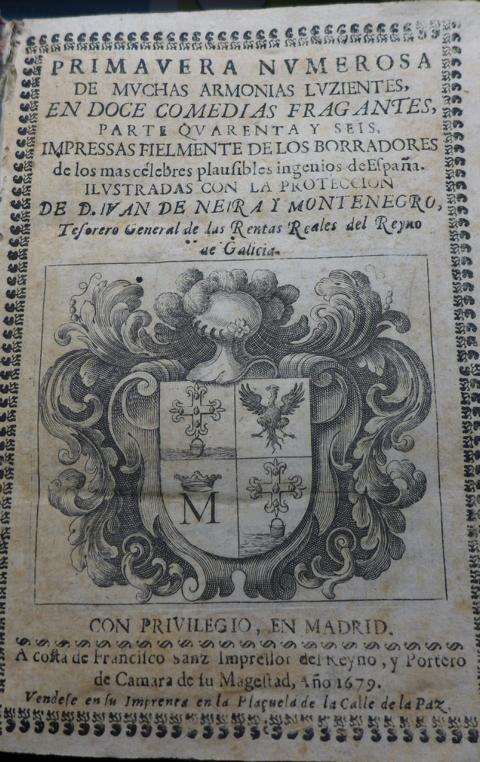 PRIMAVERA NVMEROSA
DE MVCHAS ARMONIAS LVZIENTES,
EN DOCE COMEDIAS FRAGANTES,
PARTE QVARENTA Y SEIS,
IMPRESSAS FIELMENTE DE LOS BORRADORES
de los mas célebres plausibles ingenios de España.
ILVSTRADAS CON LA PROTECCION
DE D. IVAN DE NEIRA Y MONTENEGRO,
Tesorero General de las Rentas Reales del Reyno
de Galicia.
M
CON PRIVILEGIO, EN MADRID.
A costa de Francisco Sanz Impressor del Reyno, y Portero
de Camara de su Magestad, Año 1679.
Vendese en su Imprenta en la Plaçuela de la Calle de la Paz.